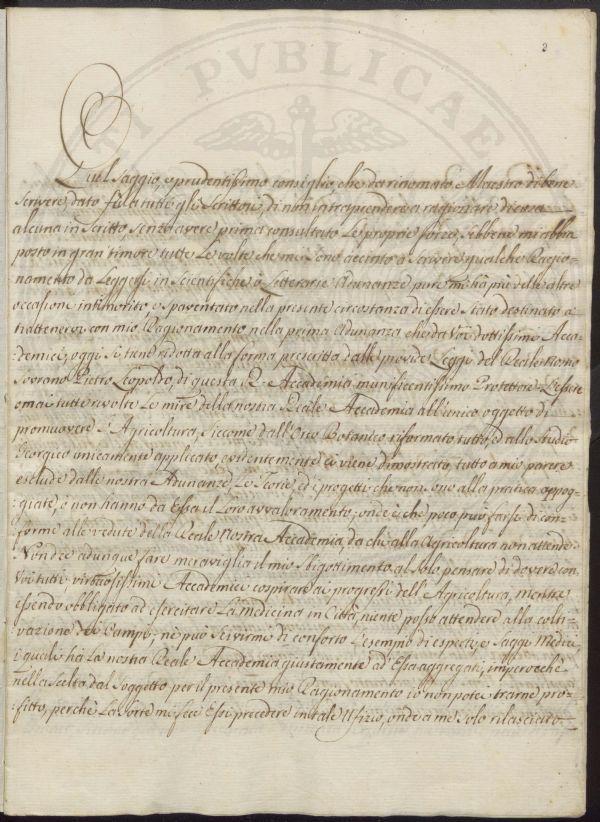 PUBLICAE
2
Quel saggio, e prudentissimo consiglio, che da rinomato Maestro di bene
scrivere, dato fù a tutti gli Scrittori, di non intraprendere a ragionare di cosa
alcuna in scritto, senza avere prima consultato le proprie forze, sebbene mi abbia
posto in gran timore tutte le volte che mi sono accinto a scrivere qualche Ragio-
namento da Leggersi in Scientifiche, o Letterarie Adunanze, pure mi ha più delle altre
occasioni intimorito, e spaventato nella presente circostanza di essere stato destinato a
trattenervi con mio Ragionamento nella prima Adunanza che da Voi dottissimi Acca-
:demici, oggi si tiene ridotta alla forma prescritta dalle provide Leggi del Reale nostro
Sovrano Pietro Leopoldo, di questa Accademia munificentissimo Protettore. Essendo
omai tutte rivolte le mire della nostra Reale Accademia all'unico oggetto di
promuovere l'Agricoltura, siccome dall'Orto Botanico riformato tutto, e allo studio
Georgico unicamente applicato evidentemente ci viene dimostrato, tutto a mio parere
esclude dalle nostra Adunanze le Teorie, ed i progetti che non sono alla pratica appog-
:giate, o non hanno da Essa il loro avvaloramento, onde è che poco può farsi di con-
:forme alle vedute della Reale Nostra Accademia, da chi alla Agricoltura non attende.
Non dee adunque fare meraviglia il mio sbigottimento al solo pensare di dovere con
Voi tutti, virtuosissimi Accademici cospirare ai progressi dell'Agricoltura, mentre
essendo obbligato ad esercitare la medicina in Città, niente posso attendere alla colti-
:vazione dei Campi, nè può servirmi di conforto l'esempio di esperti, e saggi Medici,
i quali ha la nostra Reale Accademia giustamente ad Essa aggregati, imperocchè
nella scelta del Soggetto per il presente mio Ragionamento io non potei trarne pro-
:fitto, perchè la sorte mi fece Essi precedere in tale Ufizio, onde a me solo rilasciaro-